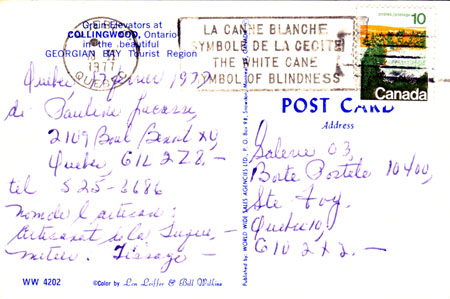 Grain Elevators at
COLLINGWOOD, Ontario
in the beautiful
GEORGIAN BAY Tourist Region
1977
QUEBEC
LA CANNE BLANCHE
SYMBOLE DE LA CECITE
THE WHITE CANE
SYMBOL OF BLINDNESS
10
Canada
Québec, 17 1977
de Pauline
2109 Boul Benoit XV,
Québec G1L 2Z8. —
tel 525-3686
nom de l'artisan:
Artisanat de la
métier. Tissage —
WW 4202
©Color by Len Leiffer & Bill Wilkins
Published by: WORLD WIDE SALES AGENCIES LTD., P. O. Box
POST CARD
Address
Galerie 03,
Boite Postale 10400,
Ste Foy,
Québec 10,
G1V 2X2. —